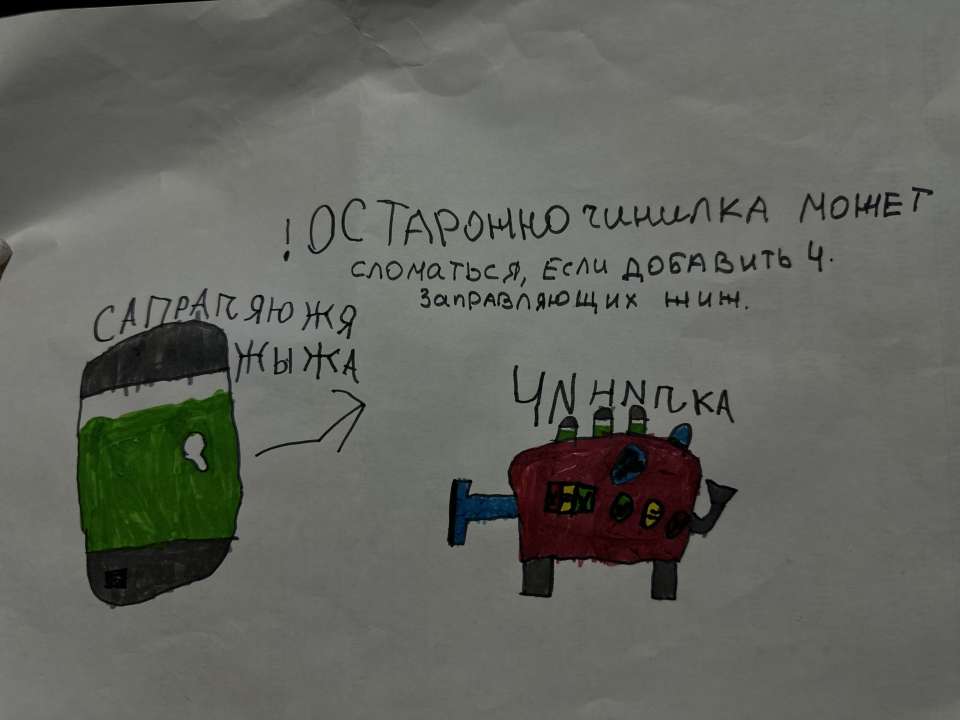 !ОСТАРОЖНО ЧИНИЛКА МОЖЕТ
СЛОМАТЬСЯ, ЕСЛИ ДОБАВИТЬ 4.
ЗАПРАВЛЯЮЩИХ ЖИЖ.
САПРАПЯЮЖЯ
ЖЫЖА
ЧИНИЛКА